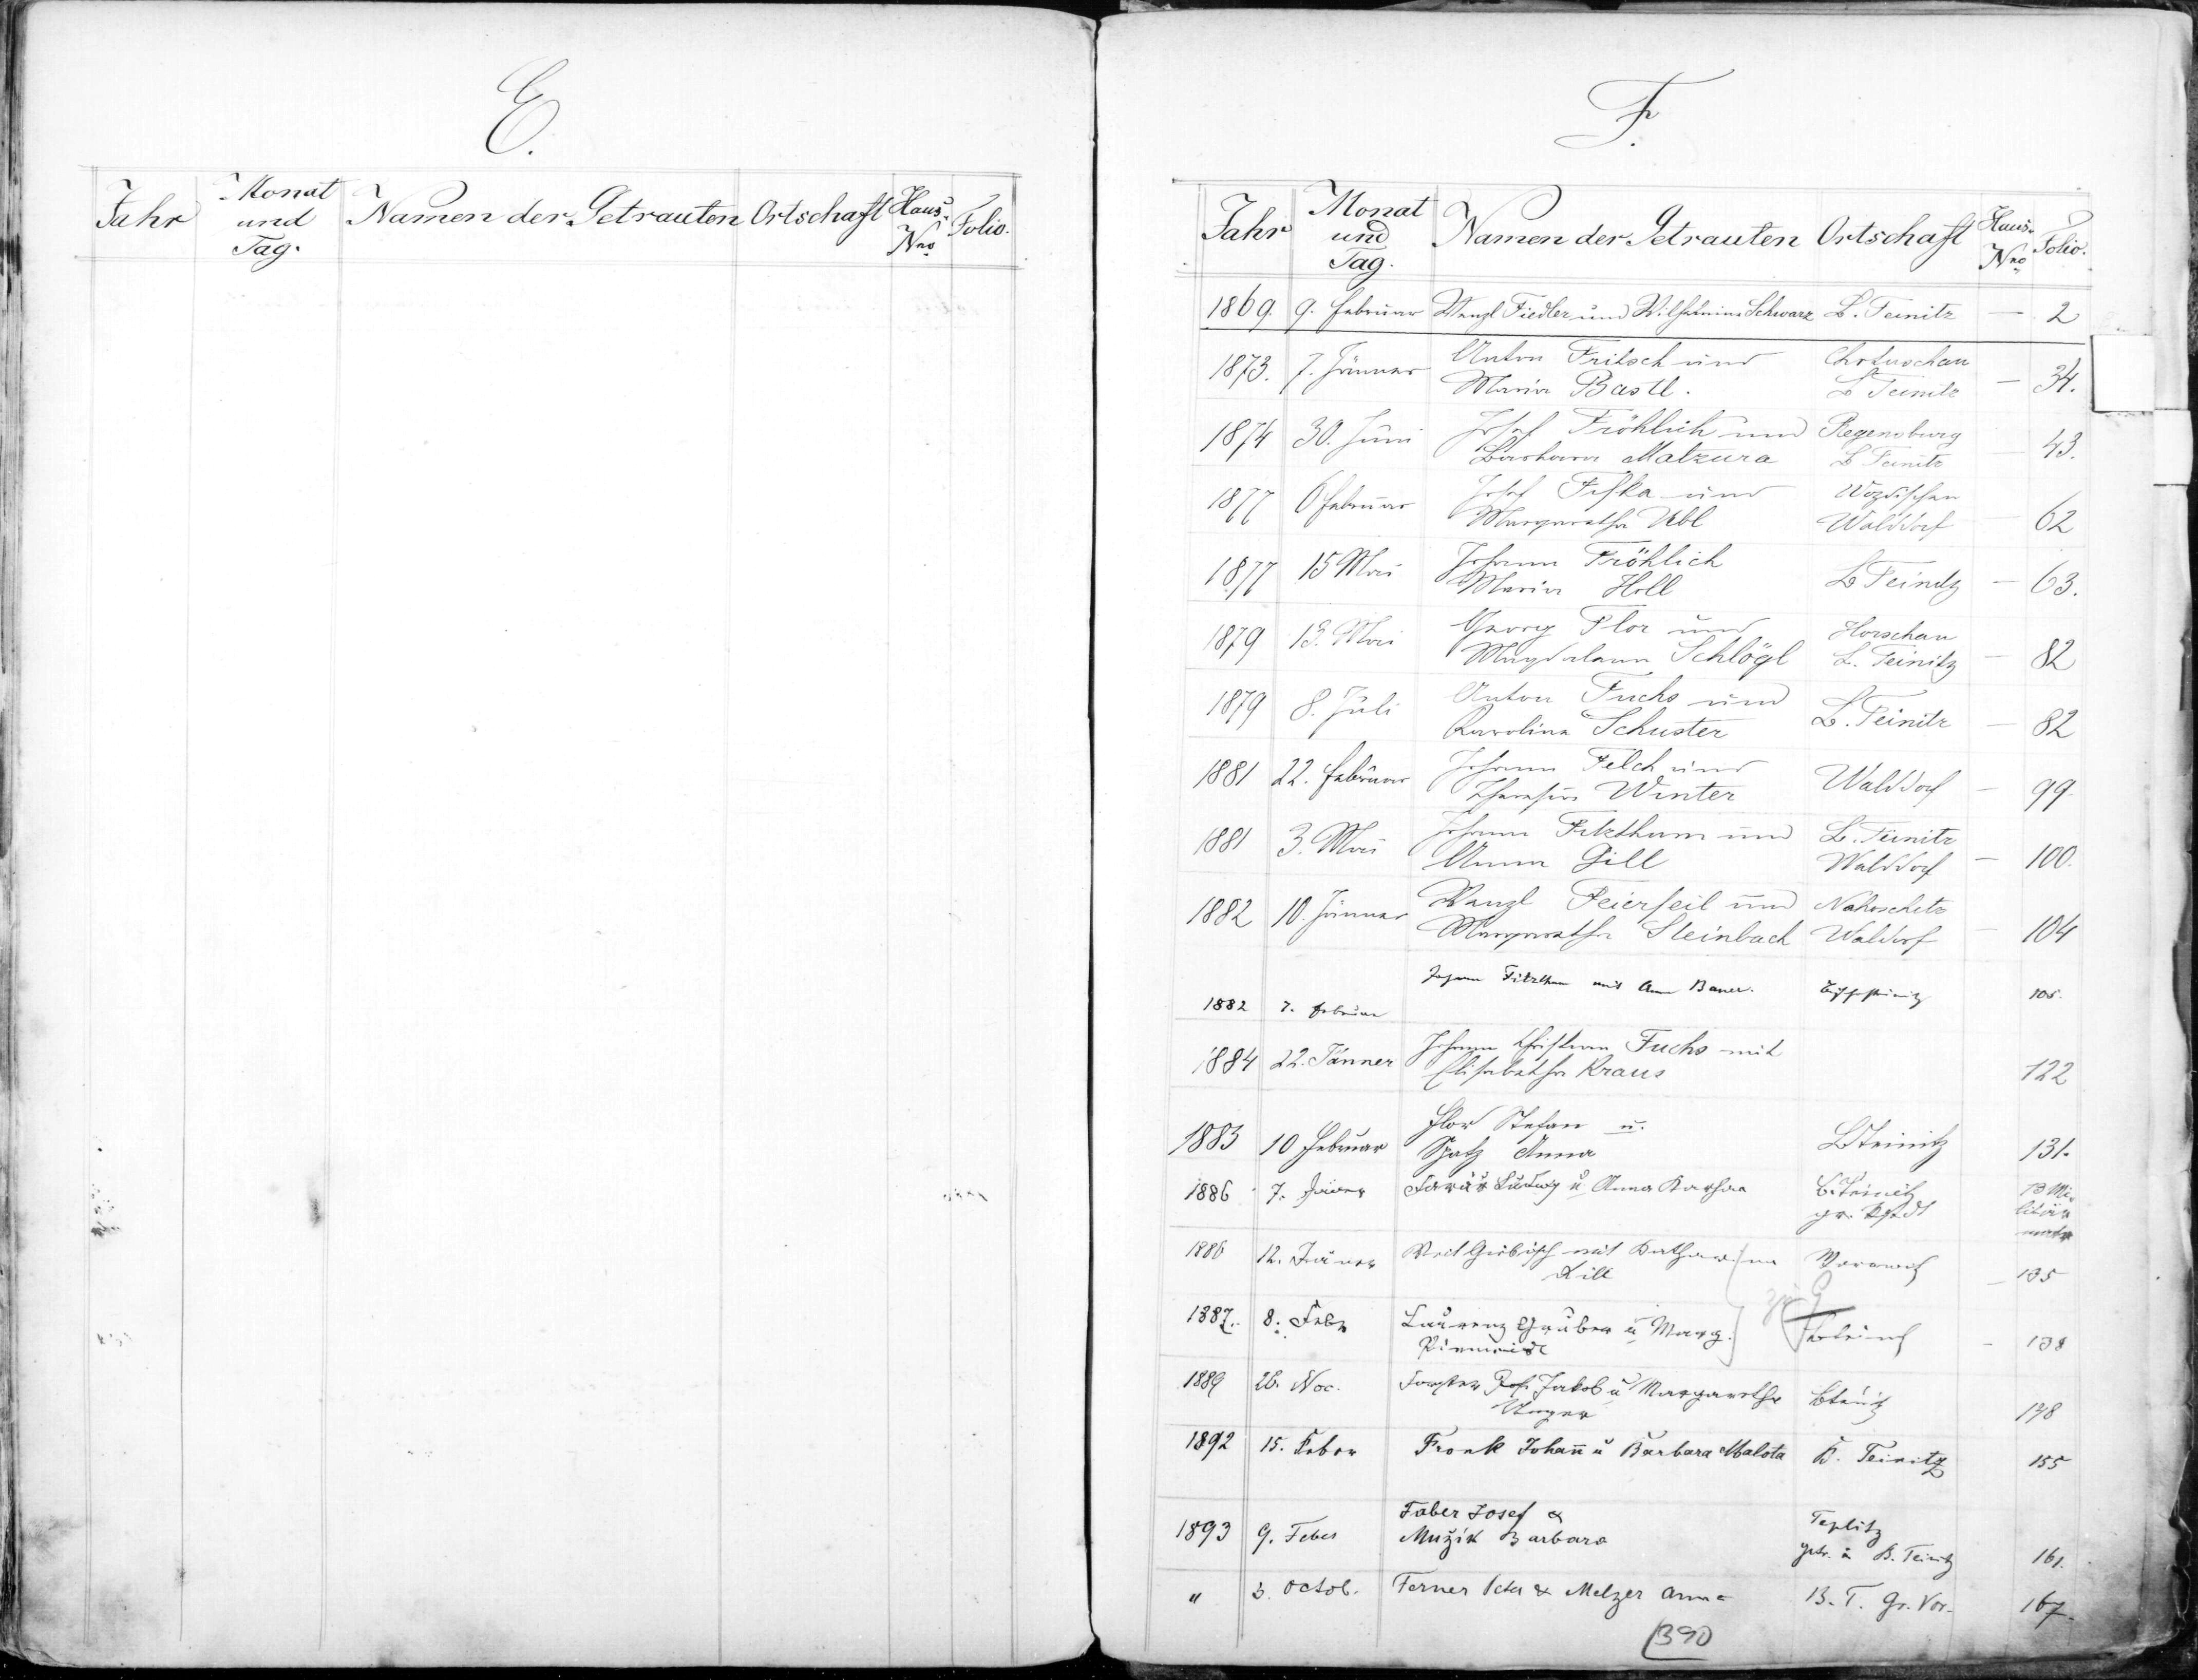 E.
Jahr Monat und Tag. Namen der Getrauten Ortschaft Haus Nro Folio.
F.
Jahr Monat und Tag. Namen der Getrauten Ortschaft Haus Nro Folio.
1869. 9. Februar Wenzl Fiedler und Wilhelmine Schwarz B. Teinitz — 2
1873. 7. Jänner Anton Fritsch und Chotuschau
Maria Bastl. B Teinitz — 34.
1874 30. Juni Josef Fröhlich und Regensburg
Barbara Matzura B Teinitz — 43.
1877 6 Februar Josef Fifka und
Margaretha Ubl Walddorf — 62
1877 15 Mai Johann Fröhlich
Maria Holl B Teinitz — 63.
1879 13. Mai Georg Flor und Horschau
Magdalena Schlögl B. Teinitz — 82
1879 8. Juli Anton Fuchs und
Karolina Schuster B. Teinitz — 82
1881 22. Februar Johann Felch und
Theresia Winter Walddorf — 99
1881 3. Mai Johann Fitzthum und B. Teinitz
Anna Gill Walddorf — 100.
1882 10. Jänner Wenzl Feierfeil und Nahoschitz
Margaretha Steinbach Walddorf — 104
Johann Fitzthum mit Anna Bauer. Bischofteinitz 105.
1882 7. Februar
1884 22. Jänner Johann Christian Fuchs mit
Elisabetha Kraus 122
Flor Stefan u.
1883 10 Februar Spatz Anna BTeinitz 131.
1886 7. Jäner Ludwig u Anna B.Teinitz 13 Mi-
litär
matr
1886 12. Jäner Veit mit Katharina — 135
Kill
zu G
1887. 8. Febr Laurenz Gruber u Marg. — 138
1889 26. Nov. Forster Jakob u Margaretha Bteinitz 148
Unger
1892 15. Feber Frank Johann u Barbara Malota B. Teinitz 155
Faber Josef & Teplitz
1893 9. Feber Mužik Barbara getr. in B. Teinitz 161.
" 3. Octob. Ferner Peter & Melzer Anna B. T. Gr. Vor. 167.
390